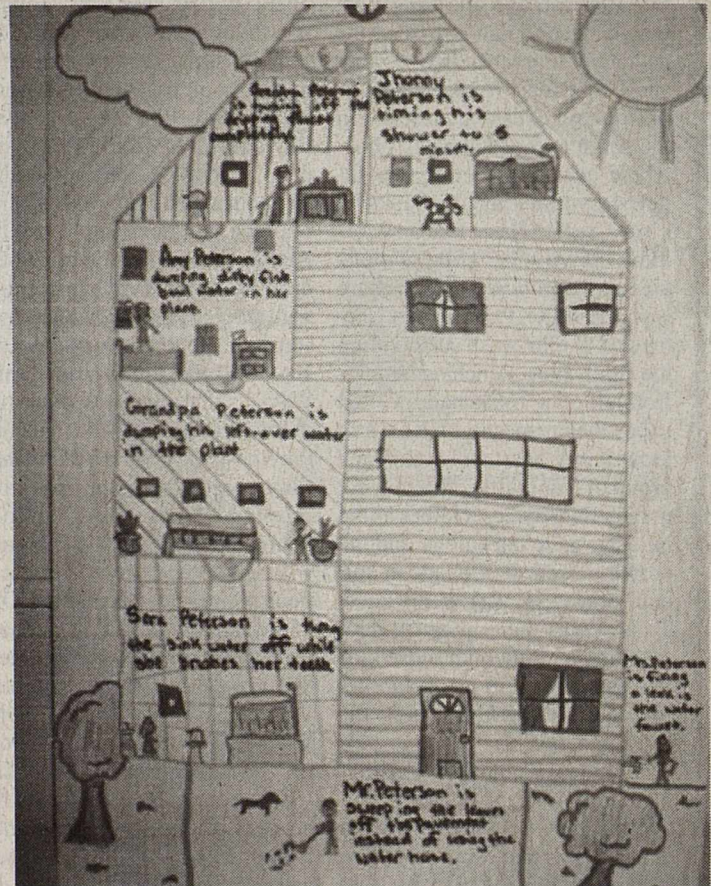 Grandma Peterson
is turning off the
dripping faucet
completely.
Jhonny
Peterson is
timing his
shower to 5
minuts.
Amy Peterson is
dumping dirty fish
bowl water in her
plant.
Grandpa Peterson is
dumping his left-over water
in the plant
Sara Peterson is
the sink water off while
she brushes her teeth.
Mrs. Peterson
is fixing
a leak in
the water
faucet.
Mr. Peterson is
sweeping the leaves
off the
instead of using the
water hose.